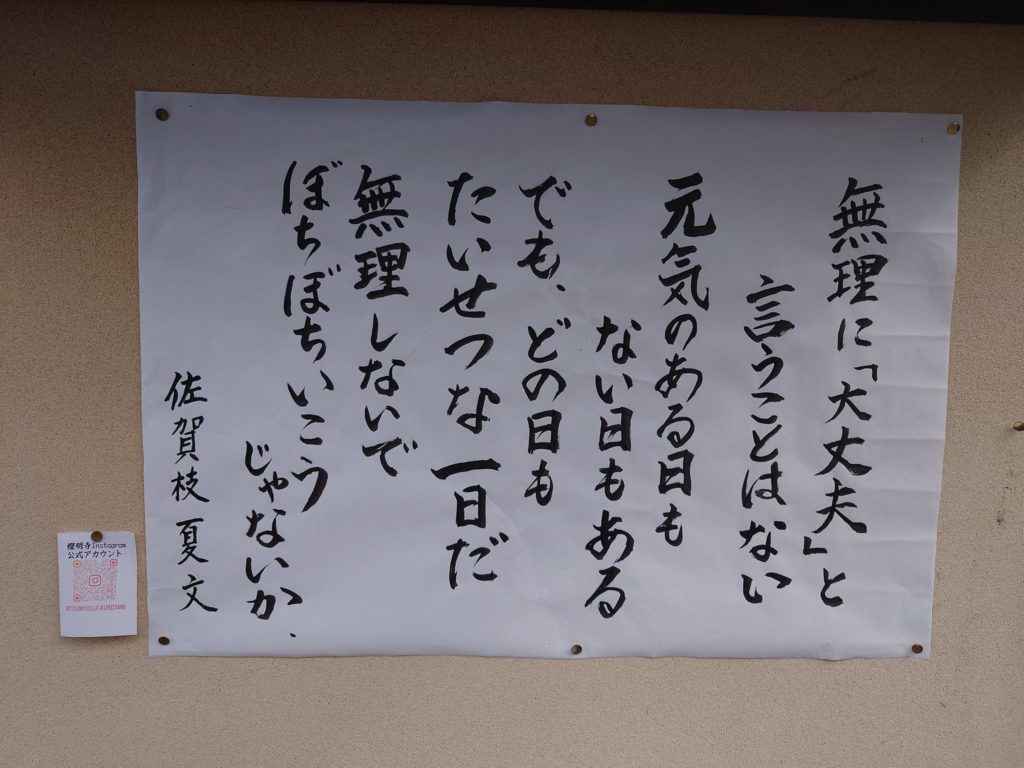 無理に「大丈夫」と
言うことはない
元気のある日も
ない日もある
でも、どの日も
たいせつな一日だ
無理しないで
ぼちぼちいこう
じゃないか、
佐賀枝夏文
燈明寺Instagram
公式アカウント
@TOUMYOUJI.KUROTANI